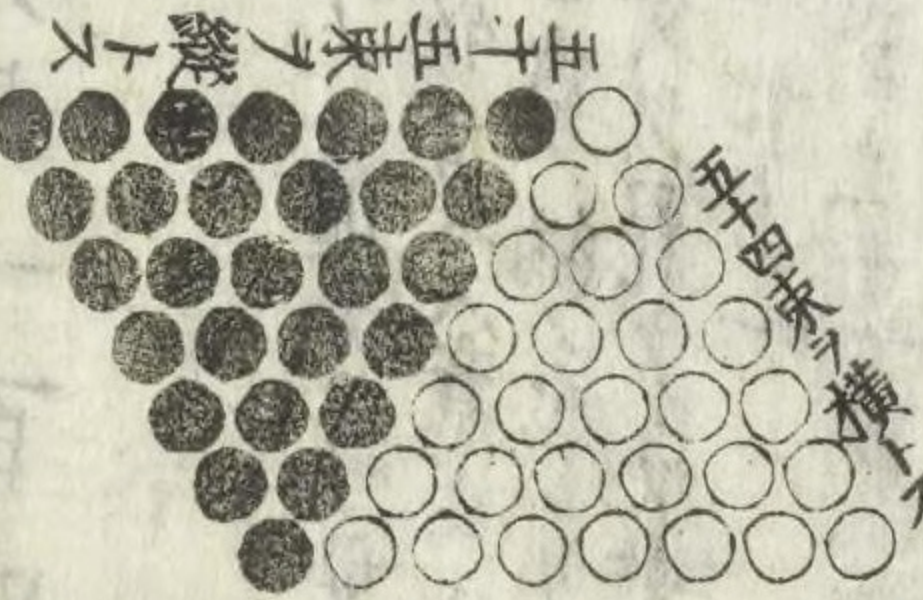 五十五束ヲ縱トス
五十四束ヲ橫トス